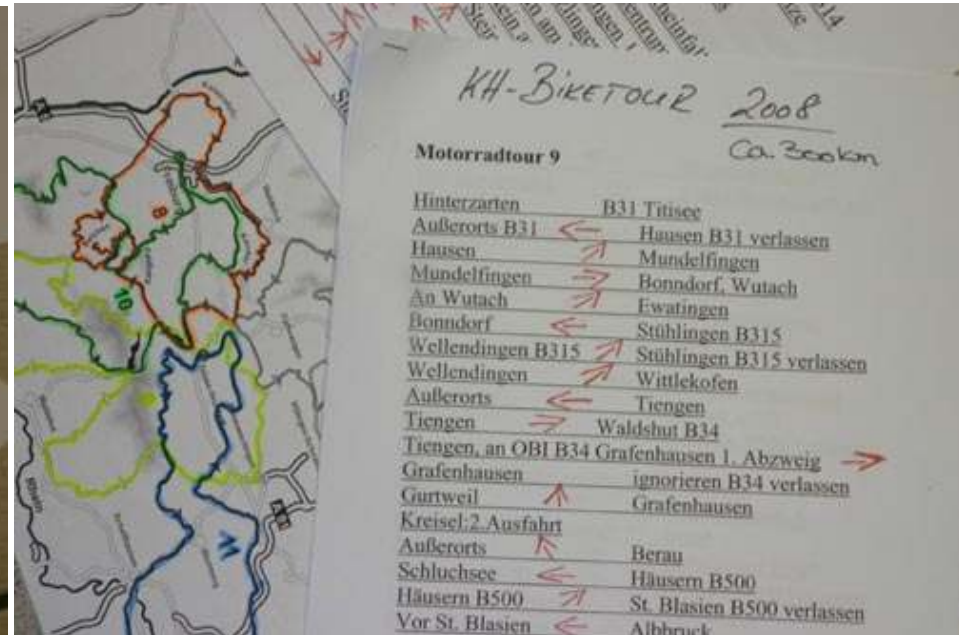 KH-BIKETOUR 2008
Ca. 300km
Motorradtour 9
Hinterzarten B31 Titisee
Außerorts B31 Hausen B31 verlassen
Hausen Mundelfingen
Mundelfingen Bonndorf, Wutach
An Wutach Ewatingen
Bonndorf Stühlingen B315
Wellendingen B315 Stühlingen B315 verlassen
Wellendingen Wittlekofen
Außerorts Tiengen
Tiengen Waldshut B34
Tiengen, an OBI B34 Grafenhausen 1. Abzweig
Grafenhausen ignorieren B34 verlassen
Gurtweil Grafenhausen
Kreisel:2.Ausfahrt
Außerorts Berau
Schluchsee Häusern B500
Häusern B500 St. Blasien B500 verlassen
Vor St. Blasien Albbruck
8
10
11
Rhein